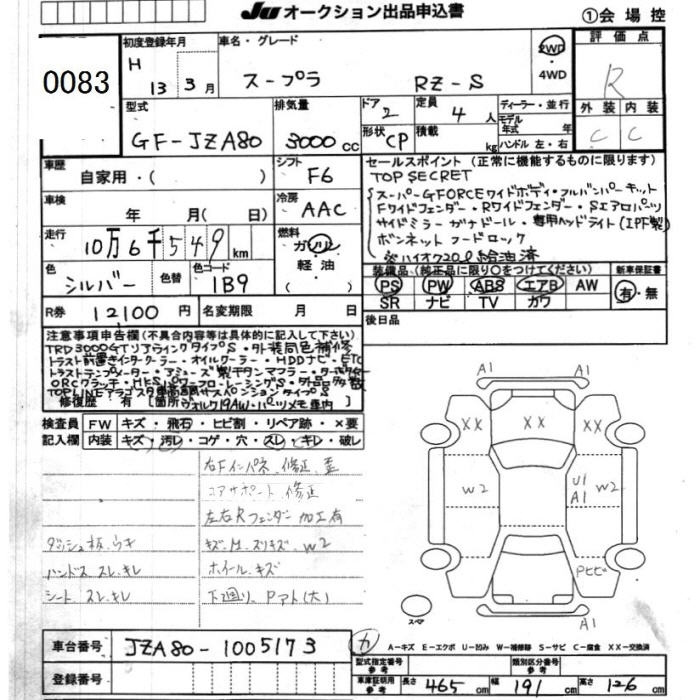 JU オークション出品申込書
①会場控
0083
初度登録年月
H
13年 3月
車名・グレード
スープラ RZ-S
2WD
・4WD
評価点
R
型式
GF-JZA80
排気量
3000cc
ドア
2
形状
CP
定員
4人
積載
kg
ディーラー・並行
モデル
年式 年
ハンドル 左・右
外装 内装
C C
車歴
自家用・( )
シフト
F6
車検
年 月( 日)
冷房
AAC
走行
10万6千549km
燃料
ガソリン
軽油
( )
色
シルバー
色替
色コード
1B9
R券
12100円
名変期限 月 日
セールスポイント (正常に機能するものに限ります)
TOP SECRET
スーパーGFORCEワイドボディ・フルバンパーキット
Fワイドフェンダー・Rワイドフェンダー・Sエアロパーツ
サイドミラー ガナドール・専用ヘッドライト(IPF製)
ボンネット フードロック
※ハイオク20ℓ給油済
装備品 (純正品に限り〇をつけてください)
新車保証書
PS PW ABS エアB AW
SR ナビ TV カワ
有・無
後日品
注意事項申告欄(不具合内容等は具体的に記入して下さい)
TRD3000GTリアウイングタイプS・外装同色補修
トラスト前置きインタークーラー・オイルクーラー・HDDナビ・ETC
ORCクラッチ・HKSパワーフロー・レーシングS・外品多数
修復歴 有 [箇所]
検査員
記入欄
FW キズ・飛石・ヒビ割・リペア跡・×要
内装 キズ・汚レ・コゲ・穴・スレ・キレ・破レ
右Fインパネ 修正 歪
コアサポート 修正
左右Rフェンダー 加工有
ダッシュ板 ウキ
キズ・凹・スリキズ・W2
ハンドス スレ キレ
ホイール キズ
シート スレ キレ
下廻り Pアト(大)
A1
XX XX
W2
U1
A1
W2
Pヒビ
A1
スペア
車台番号 JZA80-1005173
登録番号
カ
A－キズ E－エクボ U－凹み W－補修跡 S－サビ C－腐食 XX－交換済
型式指定番号
参考
類別区分番号
参考
車庫証明用
参考
長さ 465cm 幅 191cm 高さ 126cm